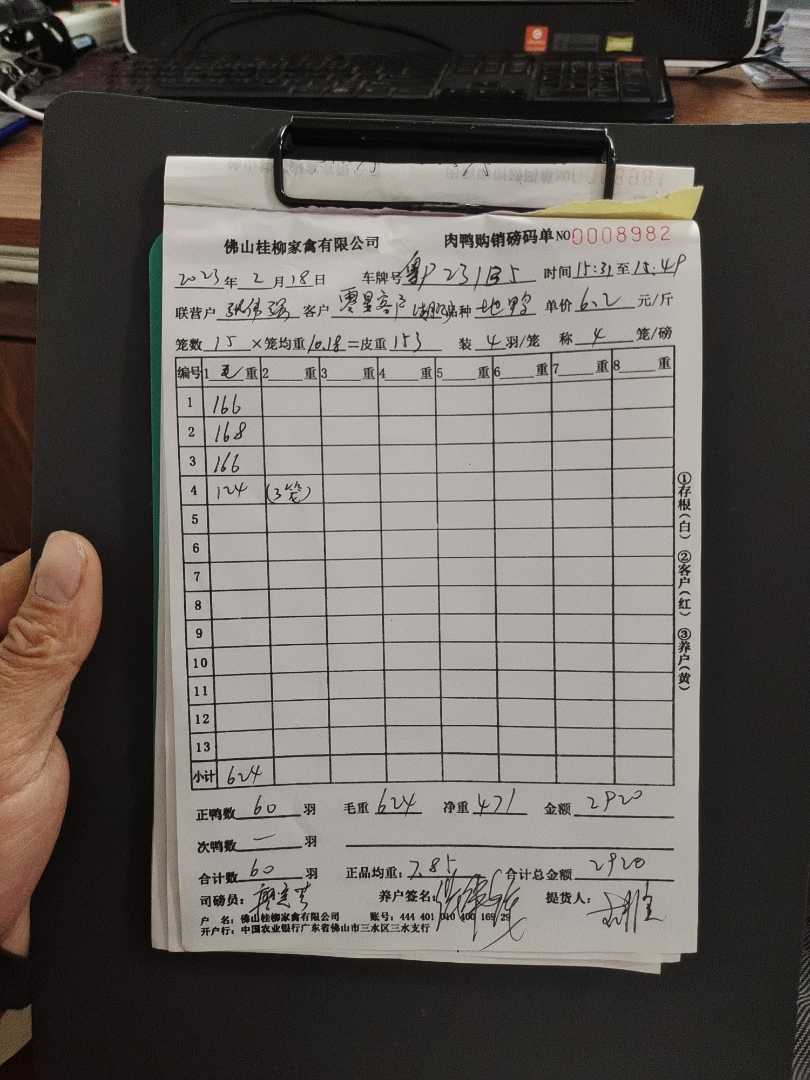 佛山桂柳家禽有限公司 肉鸭购销磅码单 NO 0008982
2023年 2月18日 车牌号 粤P231B5 时间 15:31至15:49
联营户 张伟强 客户 零星客户 品种 土也鸭 单价 6.2 元/斤
笼数 15 ×笼均重 10.18 =皮重 153 装 4 羽/笼 称 4 笼/磅
编号 1 毛 重 2 重 3 重 4 重 5 重 6 重 7 重 8 重
1 166
2 168
3 166
4 124 (3笼)
5
6
7
8
9
10
11
12
13
小计 624
正鸭数 60 羽 毛重 624 净重 471 金额 2920
次鸭数 一 羽
合计数 60 羽 正品均重: 7.85 合计总金额 2920
司磅员: 养户签名: 提货人:
户 名: 佛山桂柳家禽有限公司 账号: 444 401 010 400 169 29
开户行: 中国农业银行广东省佛山市三水区三水支行
①存根(白) ②客户(红) ③养户(黄)